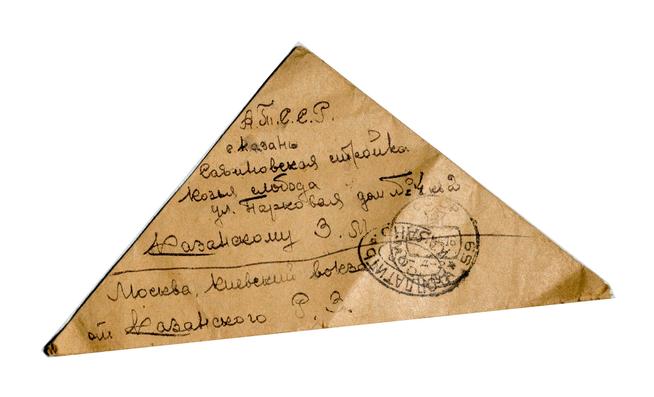 А.Т.С.С.Р.
г. Казань
Савиновская стройка
Козья слобода
ул. Парковая дом №4 кв 2
Казанскому З. М.
Москва, Киевский вокза
от Казанского Р. З.
КАЗАНЬ
659